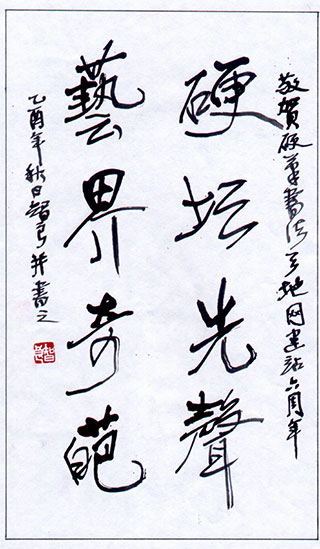 敬贺硬笔书法天地网建站六周年
硬坛先聲
藝界奇葩
乙酉年秋日智弓并書之